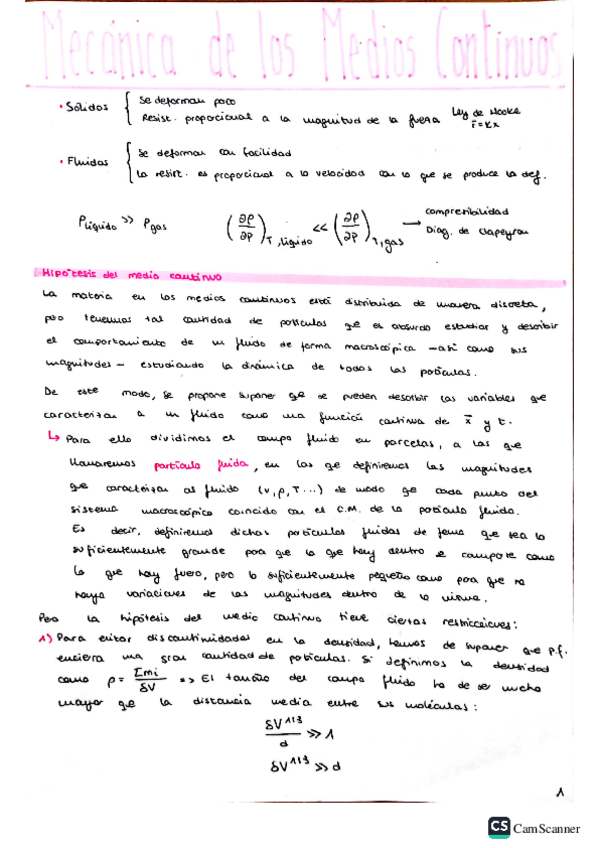 Mecánica de los Medios Continuos
• Sólidos { Se deforman poco
Resist. proporcional a la magnitud de la fuerza Ley de Hooke
F=Kx
• Fluidos { Se deforman con facilidad
La resist. es proporcional a la velocidad con lo que se produce la def.
ρlíquido >> ρgas (∂ρ/∂P)T,líquido << (∂ρ/∂P)T,gas → compresibilidad
Diag. de Clapeyron
Hipótesis del medio continuo
La materia en los medios continuos está distribuida de manera discreta,
pero tenemos tal cantidad de partículas que es absurdo estudiar y describir
el comportamiento de un fluido de forma macroscópica -así como sus
magnitudes- estudiando la dinámica de todas las partículas.
De este modo, se propone suponer que se pueden describir las variables que
caracterizan a un fluido como una función continua de x̄ y t.
↳ Para ello dividimos el campo fluido en parcelas, a las que
llamaremos partícula fluida, en las que definiremos las magnitudes
que caracterizan al fluido (v, ρ, T...) de modo que cada punto del
sistema macroscópico coincida con el C.M. de la partícula fluida.
Es decir, definiremos dichas partículas fluidas de forma que sea lo
suficientemente grande para que lo que hay dentro se comporte como
lo que hay fuera, pero lo suficientemente pequeño como para que no
haya variaciones de las magnitudes dentro de la misma.
Pero la hipótesis del medio continuo tiene ciertas restricciones:
1) Para evitar discontinuidades en la densidad, hemos de suponer que p.f.
encierra una gran cantidad de partículas. Si definimos la densidad
como ρ = Σmi/δV => El tamaño del campo fluido ha de ser mucho
mayor que la distancia media entre sus moléculas:
δV^1/3/d >> 1
δV^1/3 >> d
1
CS CamScanner